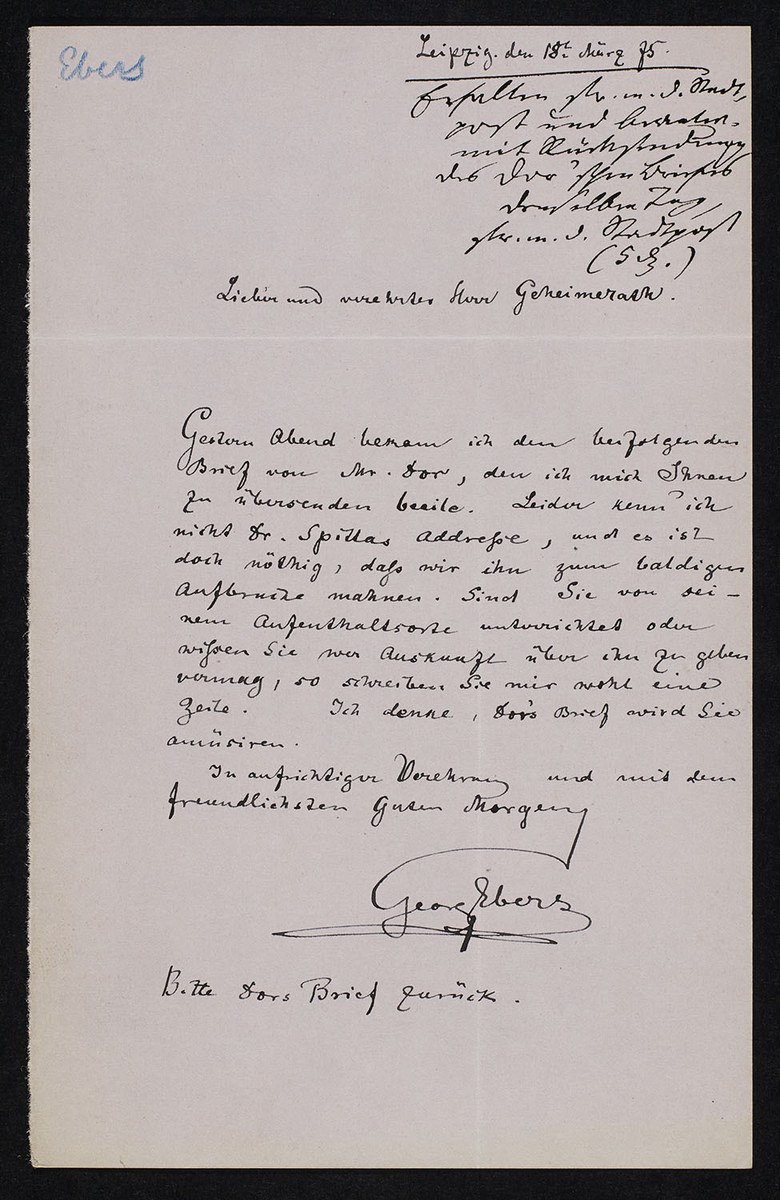 Ebers
Leipzig. den 18t März 75.
Erhalten str. m. d. Stadt,
post und beantw.
mit Rücksendung
des Dor'schen Briefes
denselben Tag,
str. m. d. Stadtpost
Lieber und verehrter Herr Geheimerath.
Gestern Abend bekam ich den beifolgenden
Brief von Mr. Dor, den ich mich Ihnen
zu übersenden beeile. Leider kenn' ich
nicht Dr. Spittas Addreſse, und es ist
doch nöthig, daſs wir ihn zum baldigen
Aufbruche mahnen. Sind Sie von sei-
nem Aufenthaltsorte unterrichtet oder
wiſsen Sie wer Auskunft über ihn zu geben
vermag, so schreiben Sie mir wohl eine
Zeile. Ich denke, Dors Brief wird Sie
amüsiren.
In aufrichtiger Verehrung und mit dem
freundlichsten Guten Morgen
Georg Ebers
Bitte Dors Brief zurück.